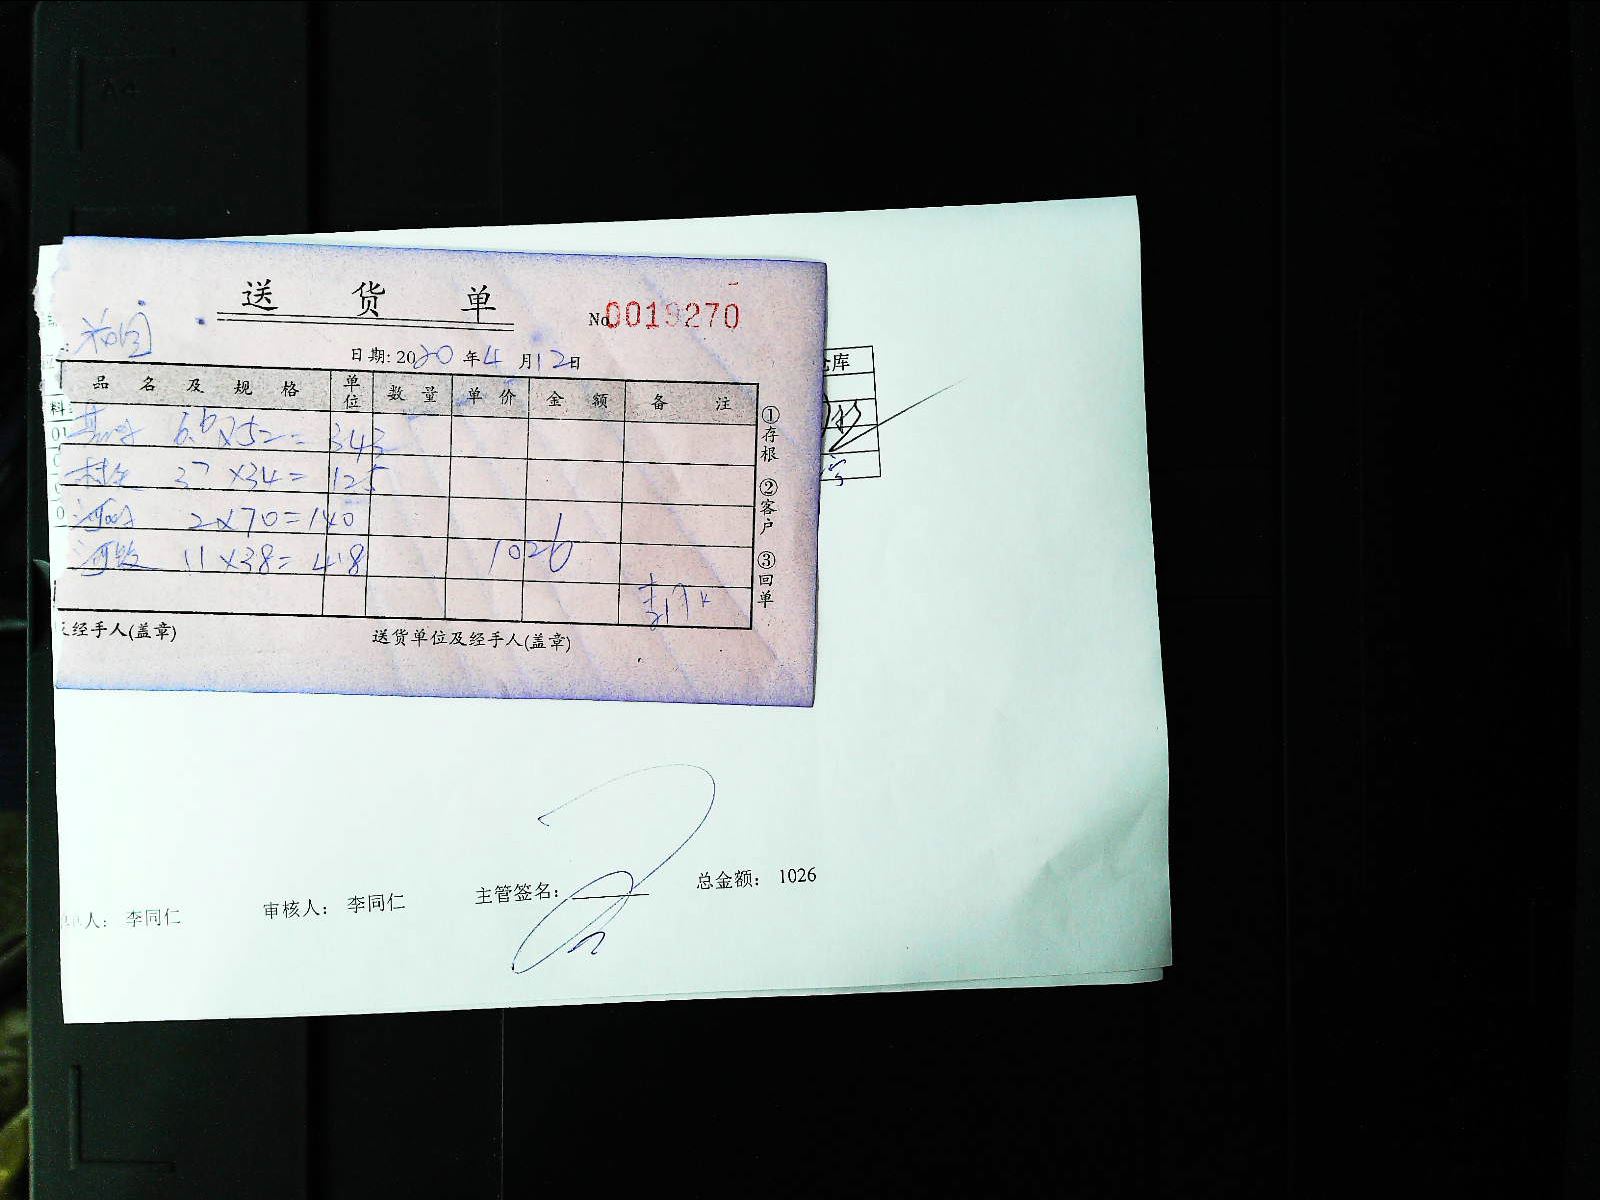 送 货 单
No.0019270
日期: 2020 年 4 月 12 日
仓库
品 名 及 规 格 单位 数 量 单 价 金 额 备 注
料
01
6.6 x 52 = 343
37 x 34 = 125
2 x 70 = 140
河 11 x 38 = 418
1026
①存根 ②客户 ③回单
及经手人(盖章) 送货单位及经手人(盖章)
人: 李同仁 审核人: 李同仁 主管签名: 总金额: 1026
A4